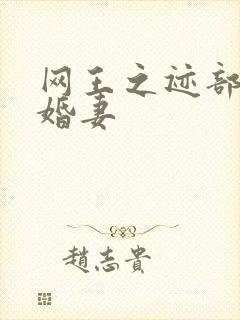 网王之迹部
婚妻
趙志貴